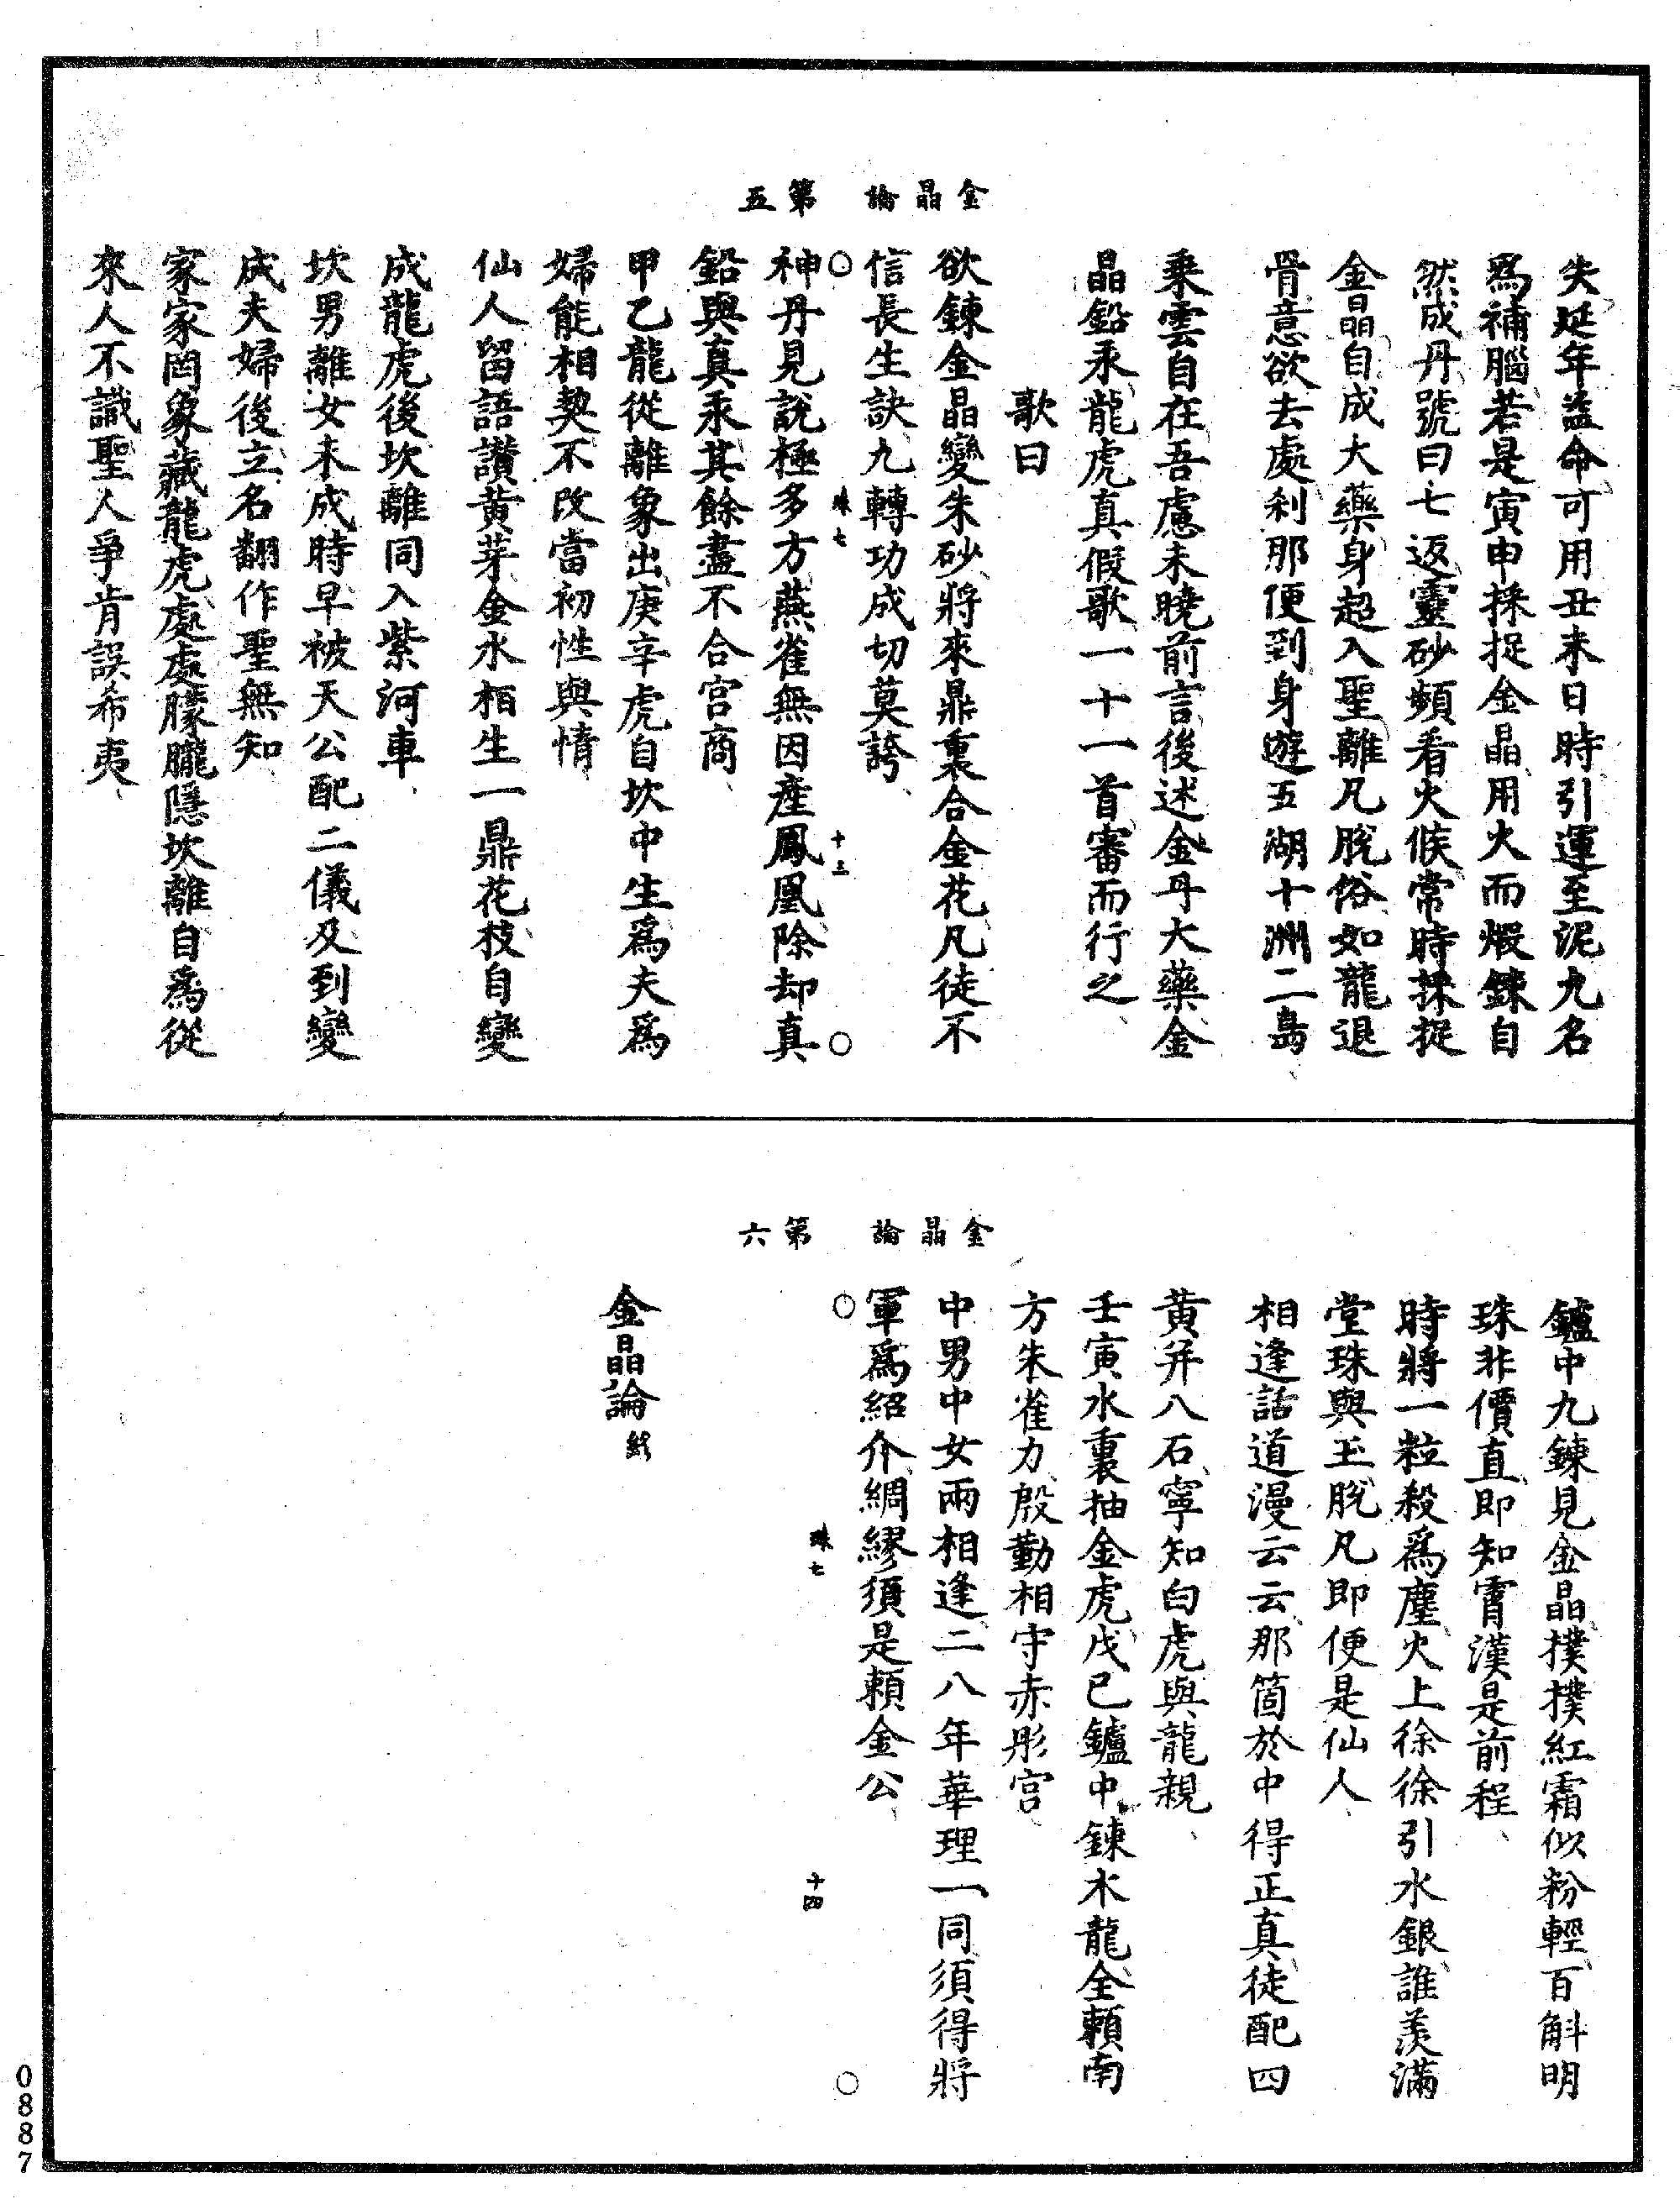 金晶論　第五
失延年益命可用丑未日時引運至泥丸名
爲補腦若是寅申採捉金晶用火而煅鍊自
然成丹號曰七返靈砂頻看火候常時採捉
金晶自成大藥身超入聖離凡脫俗如龍退
骨意欲去處刹那便到身遊五湖十洲二島
乘雲自在吾慮未曉前言後述金丹大藥金
晶鉛汞龍虎真假歌一十一首審而行之
歌曰
欲鍊金晶變朱砂將來鼎裏合金花凡徒不
信長生訣九轉功成切莫誇
珠七　十三
神丹見說極多方燕雀無因産鳳凰除却真
鉛與真汞其餘盡不合宫商
甲乙龍從離象出庚辛虎自坎中生爲夫爲
婦能相契不改當初性與情
仙人留語讚黄芽金水相生一鼎花枝自變
成龍虎後坎離同入紫河車
坎男離女未成時早被天公配二儀及到變
成夫婦後立名翻作聖無知
家家罔象藏龍虎處處朦朧隱坎離自爲從
來人不識聖人爭肯誤希夷
金晶論　第六
鑪中九鍊見金晶撲撲紅霜似粉輕百斛明
珠非價直即知霄漢是前程
時將一粒殺爲塵火上徐徐引水銀誰羨滿
堂珠與玉脫凡即便是仙人
相逢話道漫云云那箇於中得正真徒配四
黄并八石寧知白虎與龍親
壬寅水裏抽金虎戊巳鑪中鍊木龍全賴南
方朱雀力殷勤相守赤彤宫
中男中女兩相逢二八年華理一同須得將
軍爲紹介綢繆須是賴金公
珠七　十四
金晶論終
0887